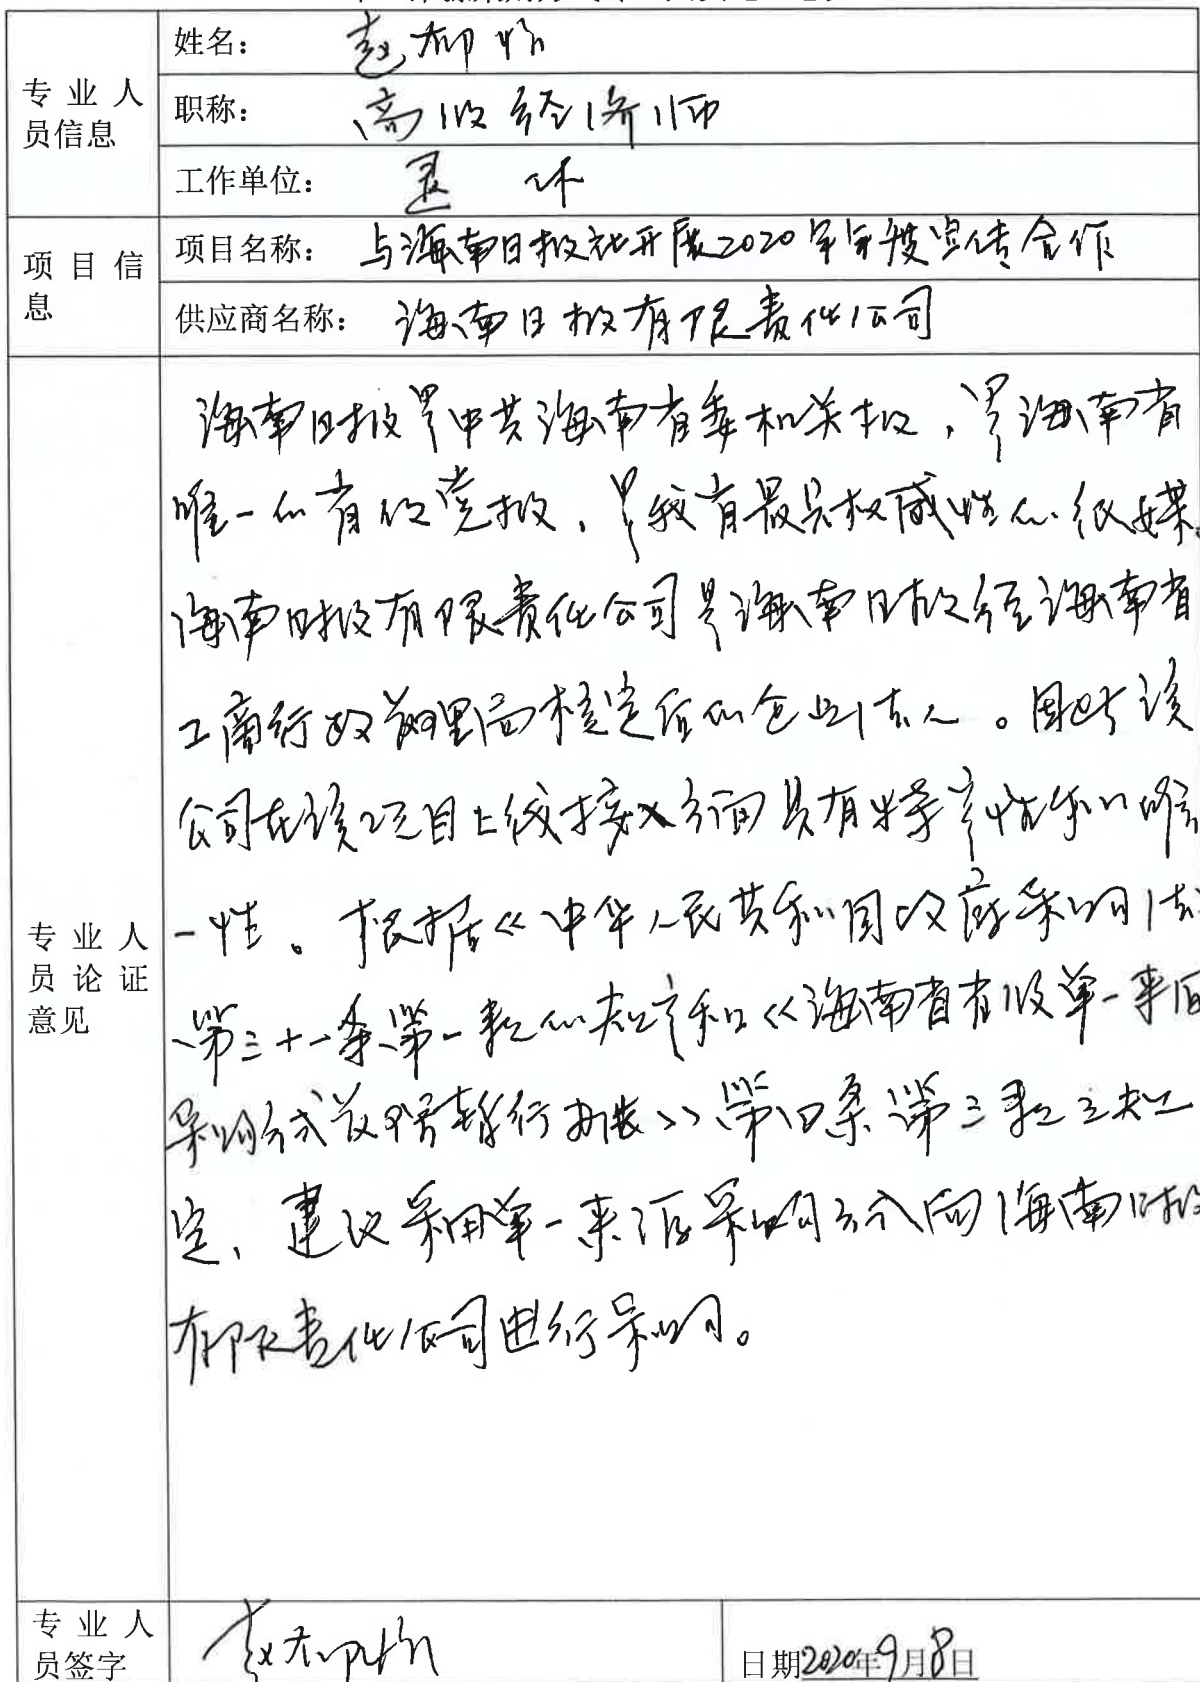 专业人员信息
姓名：赵
职称：高级经济师
工作单位：退休
项目信息
项目名称：与海南日报社开展2020年年度宣传合作
供应商名称：海南日报有限责任公司
专业人员论证意见
海南日报是中共海南省委机关报，是海南省
唯一的省级党报，是我省最具权威性的纸媒。
海南日报有限责任公司是海南日报经海南省
工商行政管理局核定后的企业法人。因此该
公司在该项目上 方面具有特 性和唯
一性。根据《中华人民共和国政府采购法》
第三十一条第一款的规定和《海南省省级单一来源
采购方式管理暂行办法》第四条第三款之规
定，建议采用单一来源采购方式向海南日报
有限责任公司进行采购。
专业人员签字
日期2020年9月8日